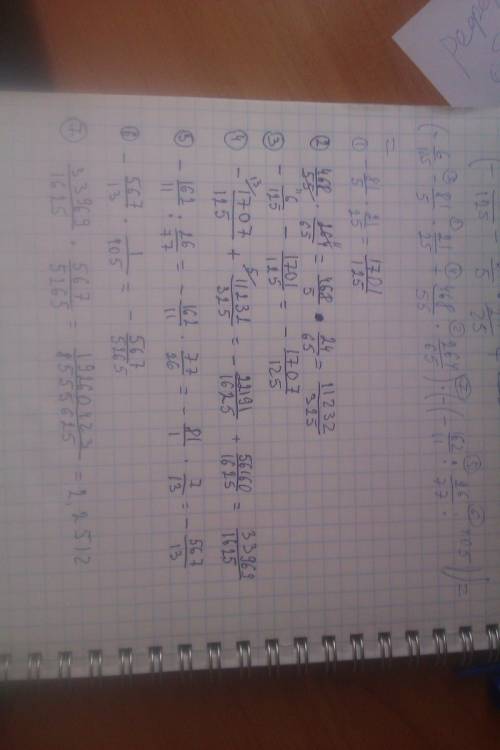 (- 6/125 - 81/5 · 21/25 + 468/55 · 264/65) · (-(- 162/11 : 26/77 · 105)) =
=
① - 81/5 · 21/25 = 1701/125
② 468/55 · 264/65 = 468/5 · 24/65 = 11232/325
③ - 6/125 - 1701/125 = - 1707/125
④ - 1707/125 + 11232/325 = - 22191/1625 + 56160/1625 = 33969/1625
⑤ - 162/11 : 26/77 = - 162/11 · 77/26 = - 81/1 · 7/13 = - 567/13
⑥ - 567/13 · 1/105 = - 567/5265
⑦ 33969/1625 · 567/5265 = 19260423/8555625 = 2,2512